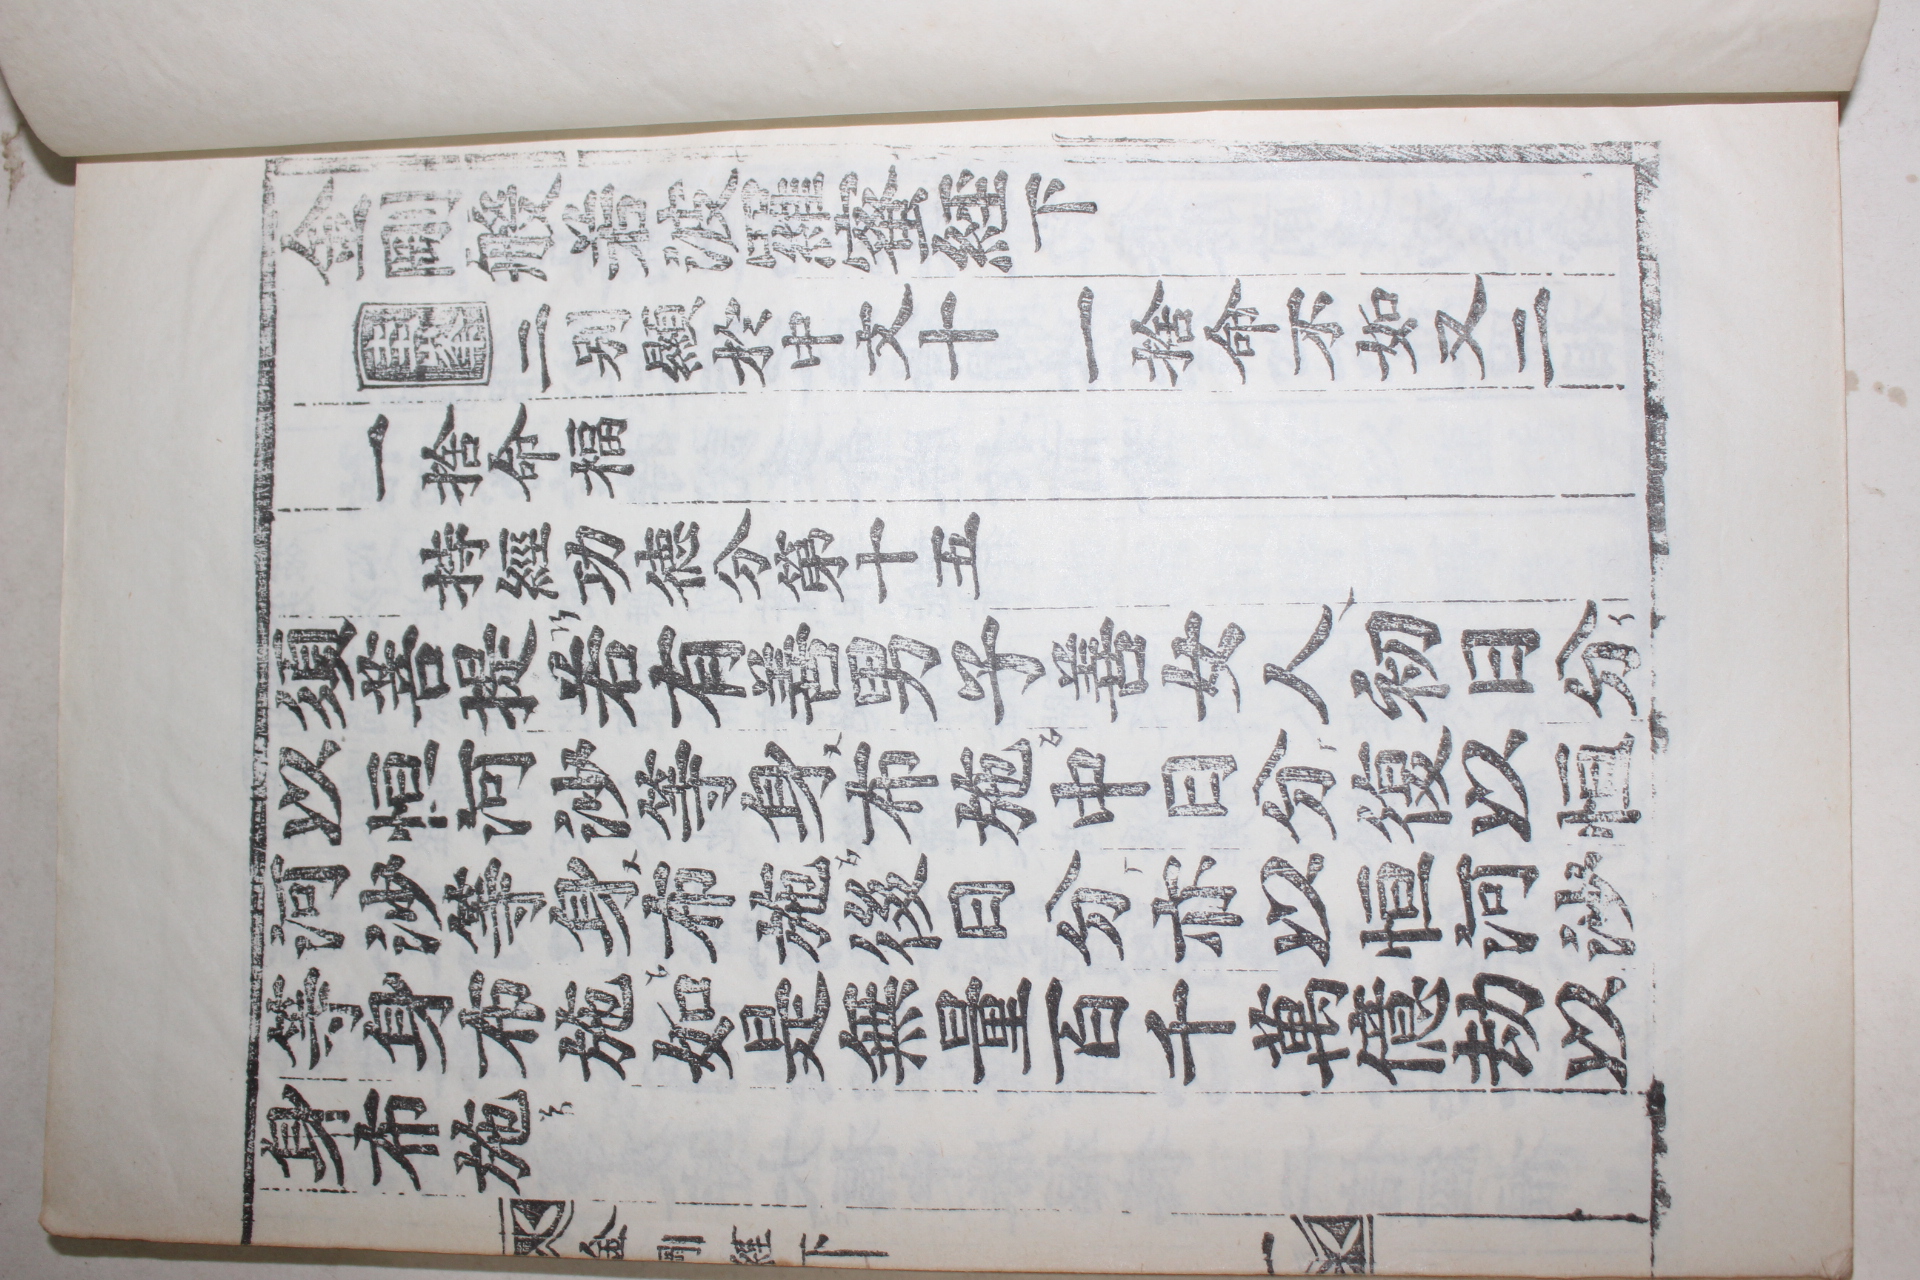 金剛般若波羅蜜經下
二別顯於中文十　一捨命不如又二
一捨命福
持經功德分第十五
須菩提若有善男子善女人初日分
以恒河沙等身布施中日分復以恒
河沙等身布施後日分亦以恒河沙
等身布施如是無量百千萬億劫以
身布施
金剛經下　一